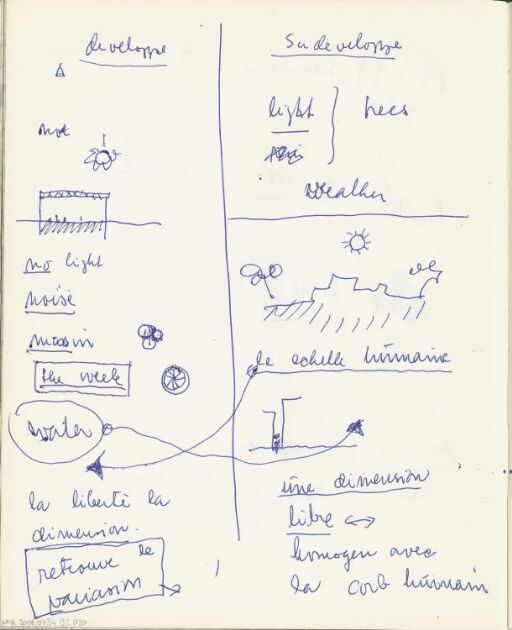 developpe
not
no light
noise
the week
water
la liberté la
dimension.
retrouve le
Su developpe
light
trees
Weather
le echelle humaine
une dimension
libre <->
homogen avec
la corb humain